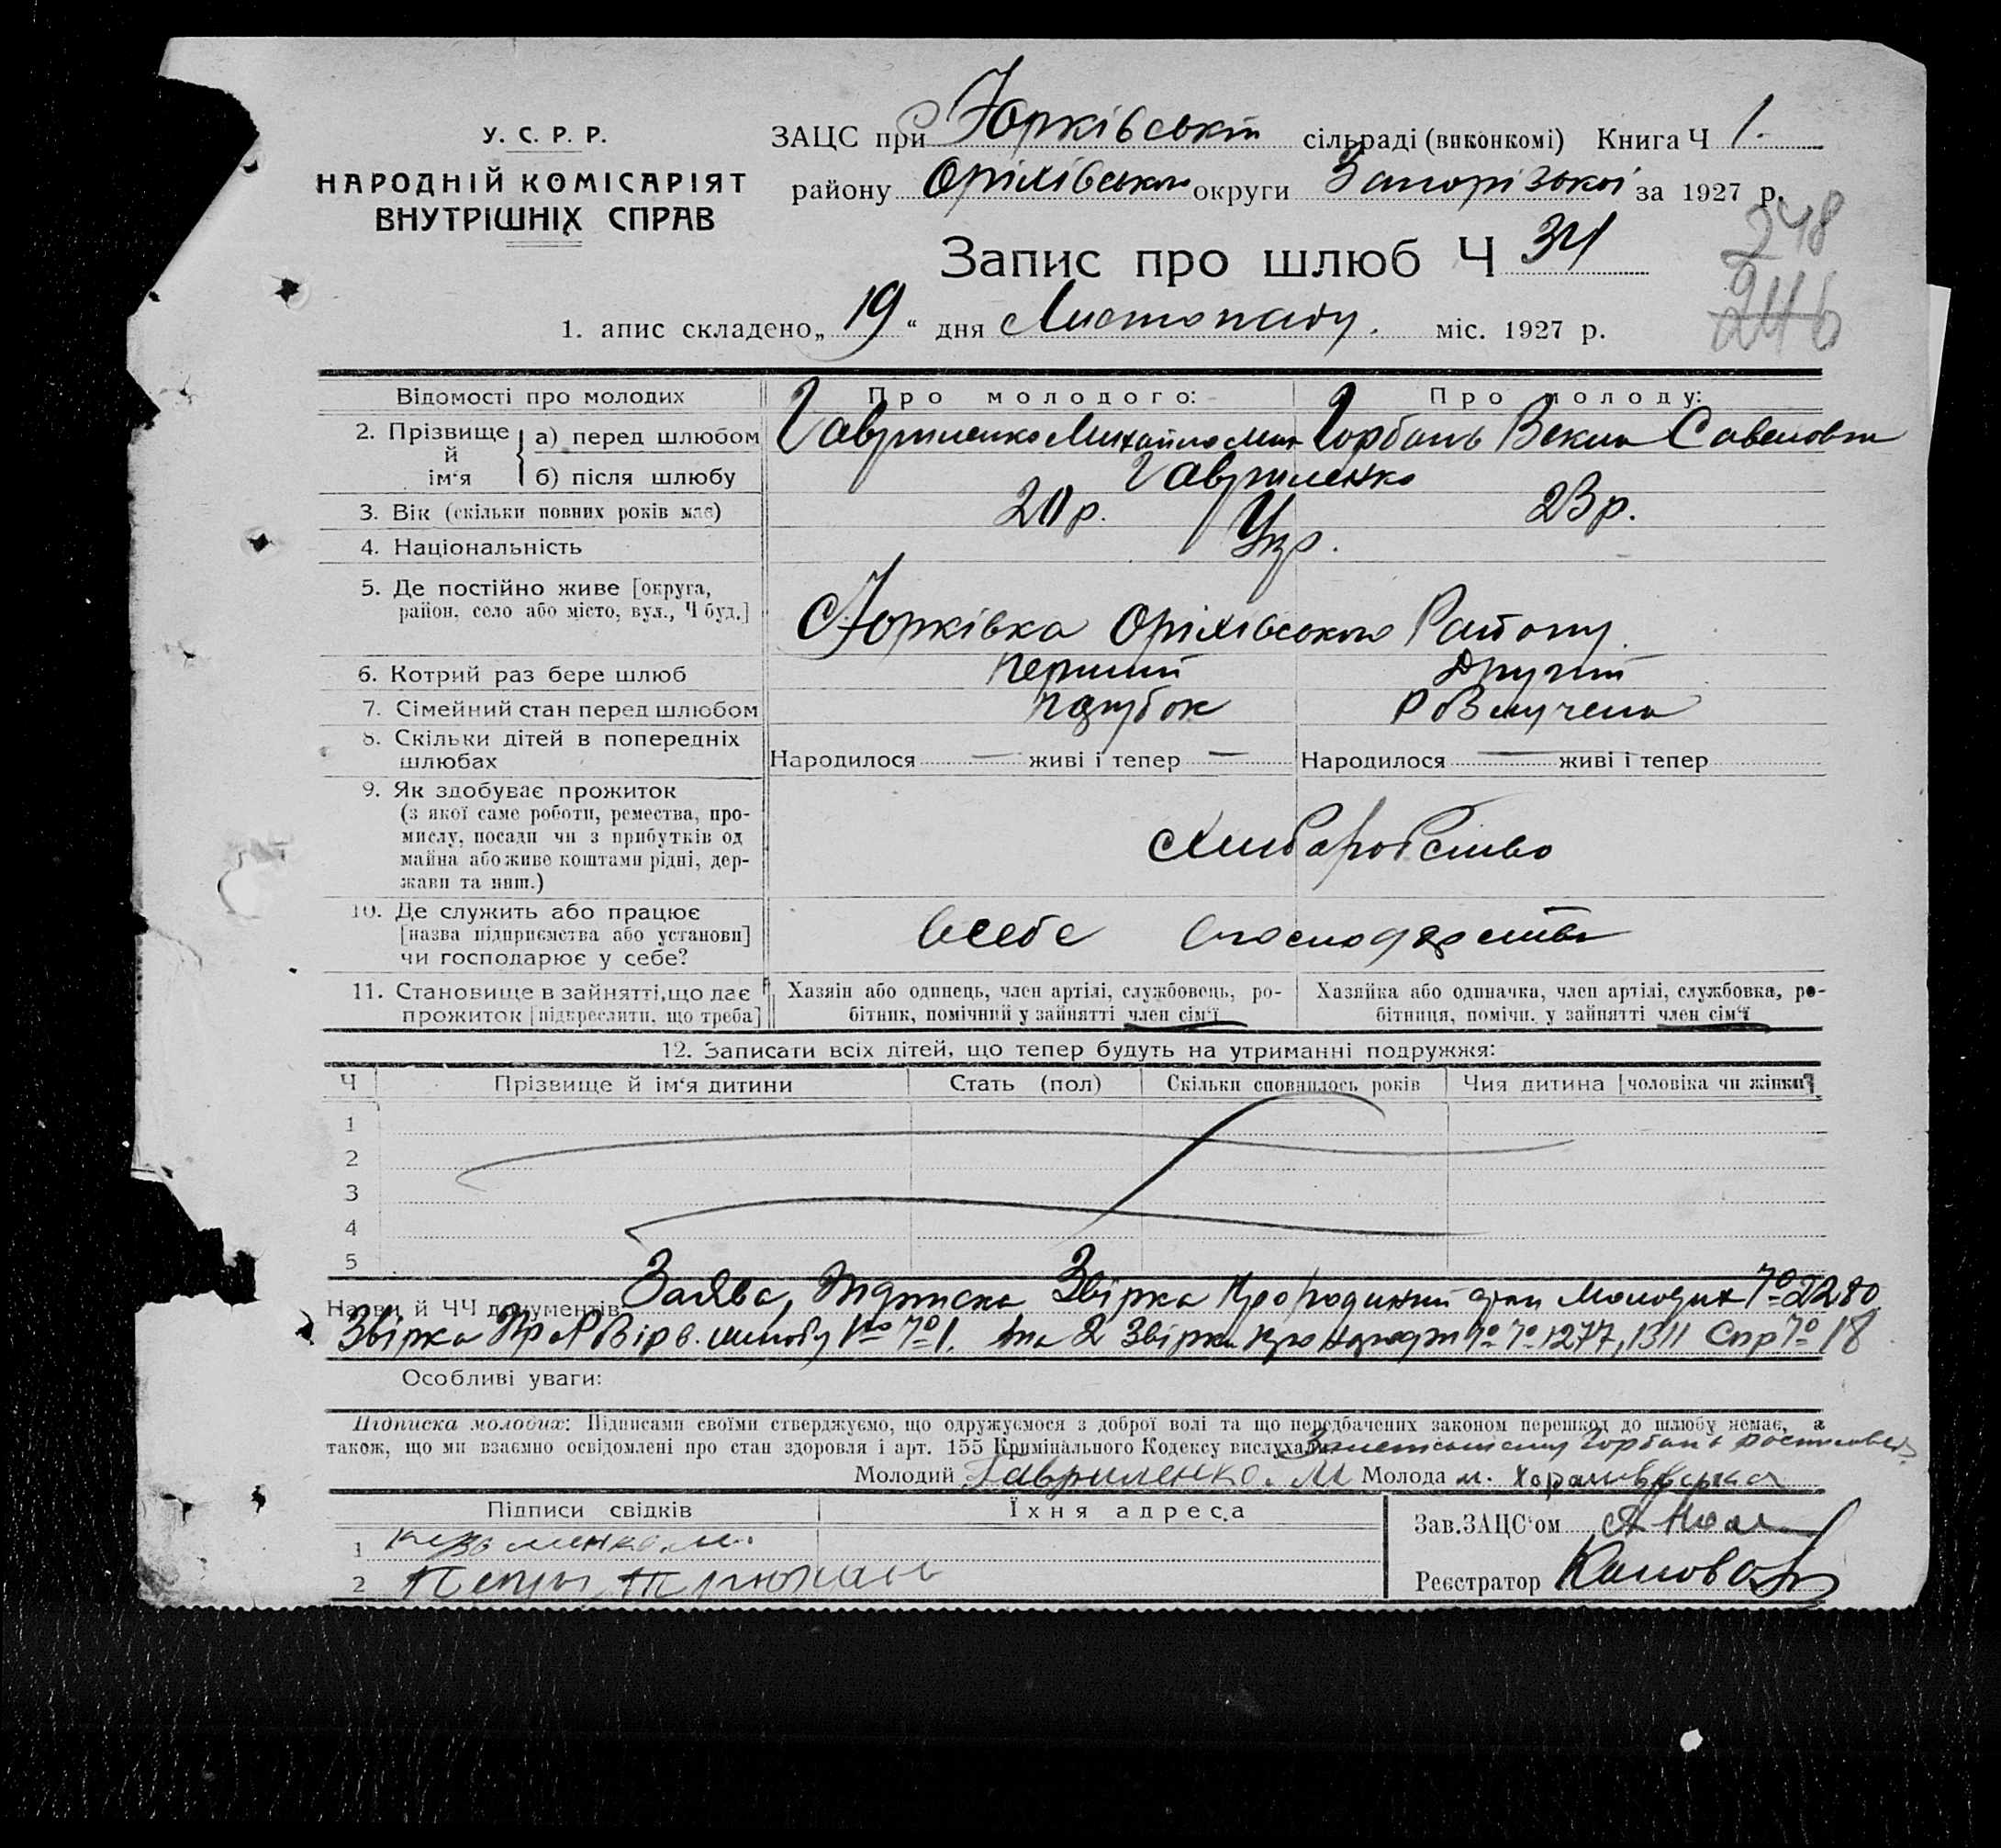 У. С. Р. Р.
НАРОДНІЙ КОМІСАРІЯТ
ВНУТРІШНІХ СПРАВ
ЗАЦС при Юрківські сільраді (виконкомі) Книга Ч 1.
району Оріхівського округи Запорізької за 1927 р.
248
246
Запис про шлюб Ч 34
1. апис складено „19“ дня Листопаду. міс. 1927 р.
Відомості про молодих Про молодого: Про молоду:
2. Прізвище й ім‘я а) перед шлюбом Гавриленко Михайло Горбань Векла Савеловна
б) після шлюбу Гавриленко
3. Вік (скільки повних років має) 20 р. 23 р.
4. Національність Укр.
5. Де постійно живе [округа,
район, село або місто, вул., Ч буд.] Юрківка Оріхівського Району
6. Котрий раз бере шлюб перший Другий
7. Сімейний стан перед шлюбом парубок Розлучена
8. Скільки дітей в попередніх
шлюбах Народилося — живі і тепер — Народилося — живі і тепер
9. Як здобуває прожиток
(з якої саме роботи, ремества, про-
мислу, посади чи з прибутків од
майна або живе коштами рідні, дер-
жави та инш.)
Хліборобство
10. Де служить або працює
[назва підприємства або установи]
чи господарює у себе?
всебе в господарстві
11. Становище в зайнятті, що дає
прожиток [підкреслити, що треба]
Хазяін або одинець, член артілі, службовець, ро-
бітник, помічний у зайнятті член сім‘ї
Хазяйка або одиначка, член артілі, службовка, ро-
бітниця, помічн. у зайнятті член сім‘ї
12. Записати всіх дітей, що тепер будуть на утриманні подружжя:
Ч Прізвище й ім‘я дитини Стать (пол) Скільки сповнилось років Чия дитина [чоловіка чи жінки]
1
2
3
4
5
Назви й ЧЧ документів Заява, Підписка Звірка Про родинний стан Молодих № 2280
Звірка Про Розірв. шлюбу № 1. та 2 Звірки про народж № № 1277, 1311 Спр № 18
Особливі уваги:
Підписка молодих: Підписами своїми стверджуємо, що одружуємося з доброї волі та що передбачених законом перешкод до шлюбу немає, а
також, що ми взаємно освідомлені про стан здоровля і арт. 155 Крімінального Кодексу вислухали. Горбань
Молодий Гавриленко. М Молода
Підписи свідків Їхня адреса
1
2 Петро
Зав. ЗАЦС‘ом
Реєстратор